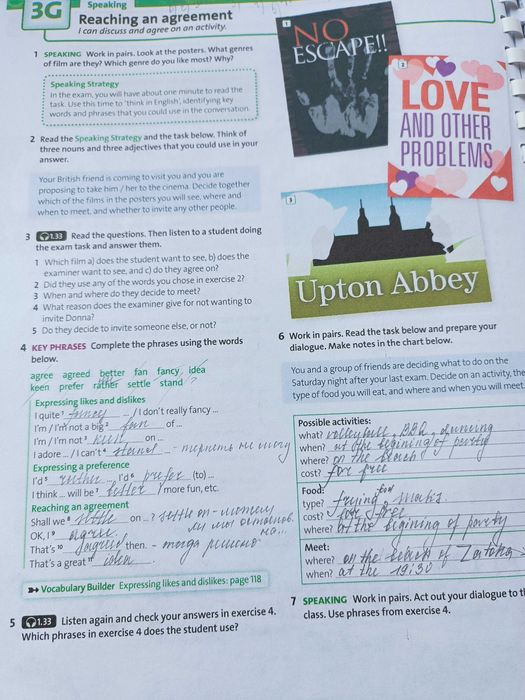 3G
Speaking
Reaching an agreement
I can discuss and agree on an activity.
1 SPEAKING Work in pairs. Look at the posters. What genres
of film are they? Which genre do you like most? Why?
Speaking Strategy
In the exam, you will have about one minute to read the
task. Use this time to 'think in English', identifying key
words and phrases that you could use in the conversation.
2 Read the Speaking Strategy and the task below. Think of
three nouns and three adjectives that you could use in your
answer.
Your British friend is coming to visit you and you are
proposing to take him / her to the cinema. Decide together
which of the films in the posters you will see, where and
when to meet, and whether to invite any other people.
3 1.33 Read the questions. Then listen to a student doing
the exam task and answer them.
1 Which film a) does the student want to see, b) does the
examiner want to see, and c) do they agree on?
2 Did they use any of the words you chose in exercise 2?
3 When and where do they decide to meet?
4 What reason does the examiner give for not wanting to
invite Donna?
5 Do they decide to invite someone else, or not?
4 KEY PHRASES Complete the phrases using the words
below.
agree agreed better fan fancy idea
keen prefer rather settle stand
Expressing likes and dislikes
I quite 1 fancy ... / I don't really fancy ...
I'm / I'm not a big 2 fan of ...
I'm / I'm not 3 keen on ...
I adore ... / I can't 4 stand ... - терпеть не могу
Expressing a preference
I'd 5 rather ... I'd 6 prefer (to) ...
I think ... will be 7 better / more fun, etc.
Reaching an agreement
Shall we 8 settle on ...? settle on -
OK, I 9 agree.
That's 10 agreed then. - тогда решено
That's a great 11 idea.
Vocabulary Builder Expressing likes and dislikes: page 118
5 1.33 Listen again and check your answers in exercise 4.
Which phrases in exercise 4 does the student use?
1
NO
ESCAPE!!
2
LOVE
AND OTHER
PROBLEMS
3
Upton Abbey
6 Work in pairs. Read the task below and prepare your
dialogue. Make notes in the chart below.
You and a group of friends are deciding what to do on the
Saturday night after your last exam. Decide on an activity, the
type of food you will eat, and where and when you will meet.
Possible activities:
what? volleyball, BBQ, dancing
when? at the begining of party
where? on the beach
cost? for free
Food:
type? frying food, snacks
cost? for free
where? at the bigining of party
Meet:
where? on the beach of Zatoka
when? at the 19:30
7 SPEAKING Work in pairs. Act out your dialogue to th
class. Use phrases from exercise 4.